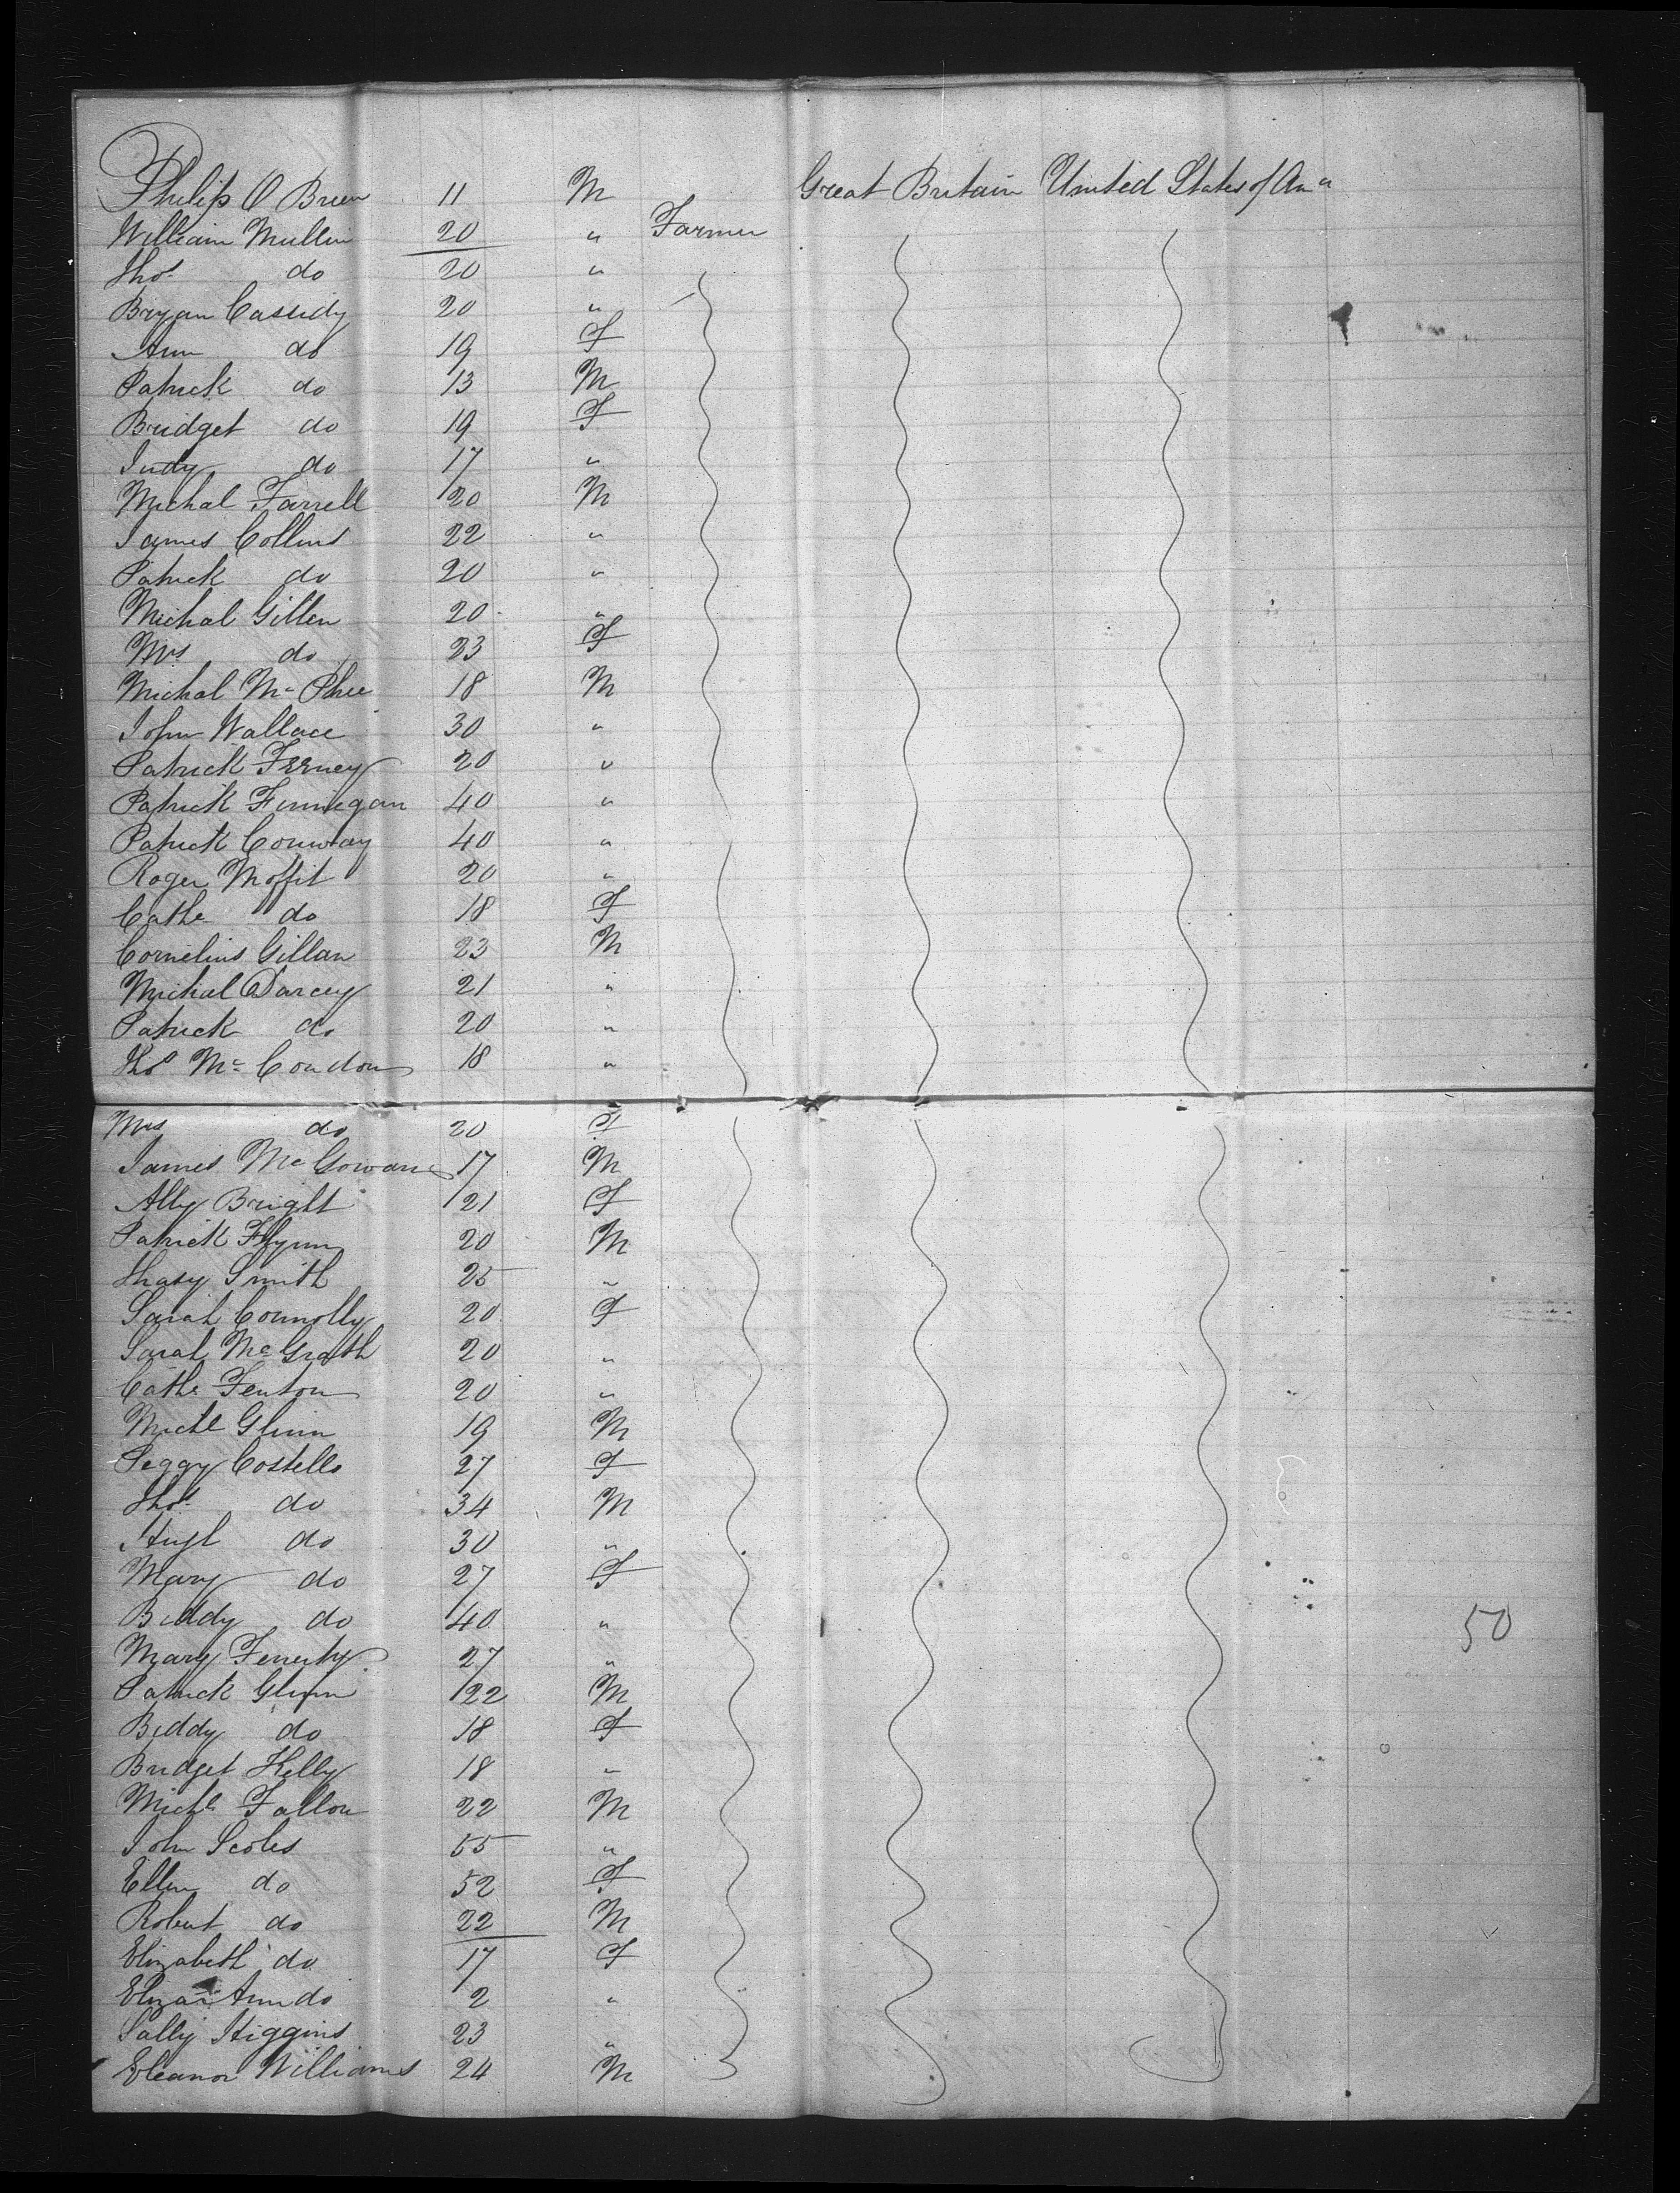 Philip O Brien 11 M Great Britain United States of Ama
William Mullin 20 " Farmer
Thos do 20 "
Bryan Cassidy 20 "
Ann do 19 F
Patrick do 13 M
Bridget do 19 F
Judy do 17 "
Michal Farrell 20 M
James Collins 22 "
Patrick do 20 "
Michal Gillen 20 "
Mrs do 23 F
Michal Mc Phee 18 M
John Wallace 30 "
Patrick 20 "
Patrick Finnegan 40 "
Patrick Conway 40 "
Roger Moffit 20 "
Cathe do 18 F
Cornelius Gillan 23 M
Michal Darcey 21 "
Patrick do 20 "
Thos Mc Condon 18 "
Mrs do 20 F
James Mc Gowan 17 M
Ally Bright 21 F
Patrick Flynn 20 M
Smith 25 "
Sarah Connolly 20 F
Sarah McGrath 20 "
Cathe Fenton 20 "
Michl Glinn 19 M
Peggy Costello 27 F
Thos do 34 M
Hugh do 30 "
Mary do 27 F
Biddy do 40 "
Mary Fenerty 27 "
50
Patrick Glynn 22 M
Biddy do 18 F
Bridget Kelly 18 "
Michl Fallon 22 M
John Scoles 55 "
Ellen do 52 F
Robert do 22 M
Elizabeth do 17 F
Eliza Ann do 2 "
Sally Higgins 23 "
Eleanor Williams 24 M